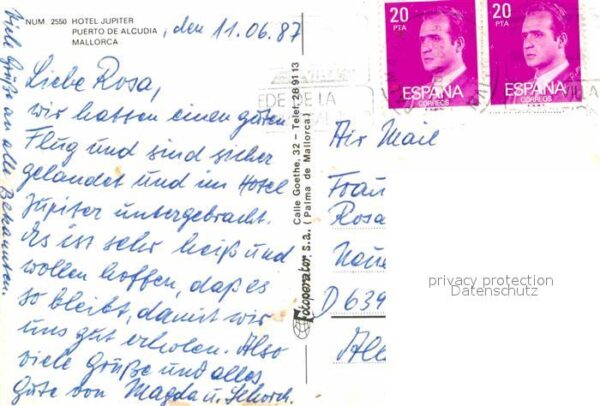 NUM. 2550 HOTEL JUPITER
PUERTO DE ALCUDIA
MALLORCA
, den 11.06.87
Liebe Rosa,
wir hatten einen guten
Flug und sind sicher
gelandet und im Hotel
Jupiter untergebracht.
Es ist sehr heiß und
wollen hoffen, daß es
so bleibt, damit wir
uns gut erholen. Also
viele Grüße und alles
Gute von Magda u. Schorch.
Viele Grüße an alle Bekannten.
Fotoperator, s.a.
Calle Goethe, 32 - Telef. 28 91 13
(Palma de Mallorca)
20
PTA
ESPAÑA
CORREOS
20
PTA
ESPAÑA
CORREOS
DE LA
Air Mail
Frau
Rosa
D 639
privacy protection
Datenschutz